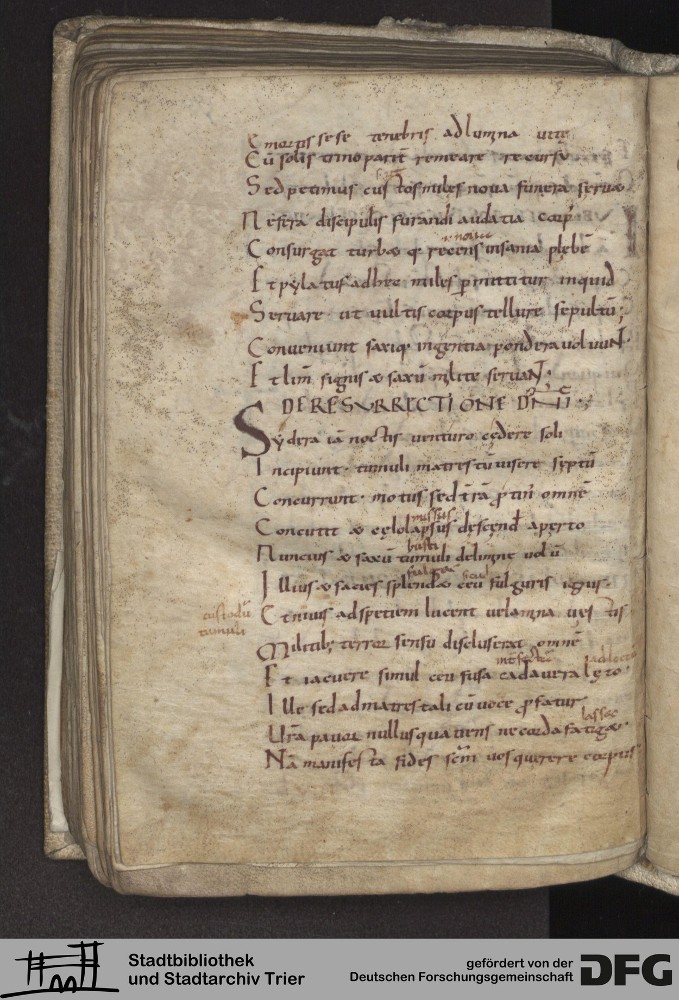 E mortis sese tenebris ad lumina uite
Cū solis trino parit̄ remeare recursū
Sed petimus custos miles noua funera seruæ
Ne ſtra discipulis furandi audatia corp̄
ꝛ nouu
Consurgat turbæ q; recens insania plębē
Et pylatus adhęc miles ꝑmittitur inquid
Seruare ut uultis corpus tellure sepultū;
Conueniunt saxiq; ingentia pondera uoluuNt
Et lim̄ signis & saxū milite seruaNt.
DE RESURRECTIONE DN̄I;
Sydera iā noctis uenturo cędere soli
Incipiunt. tumuli matres tū uisere septū
Concurrunt. motus sed t̄rā ꝓtin̄ omnē
missus
Concutit & cęlo lapsus descend̄ aperto
busti
Nuncius & saxū tumuli delimine uoluū
fulgor sicut
Illius & facies splendæ ceu fulguris ignis.
custodū
tumuli
Et niuis ad spetiem lucent uelamina uestis
Militib; terror sensū discluserat omnē
Et iacuere simul ceu fusa cadauera lęto.
Ille sed ad matres tali cū uoce ꝓfatur
lassæ
Ur̄a pauor nullus quatiens ne corda fatigæ
Nā manifesta fides sc̄m uos querere corpus
Stadtbibliothek
und Stadtarchiv Trier
gefördert von der
Deutschen Forschungsgemeinschaft
DFG